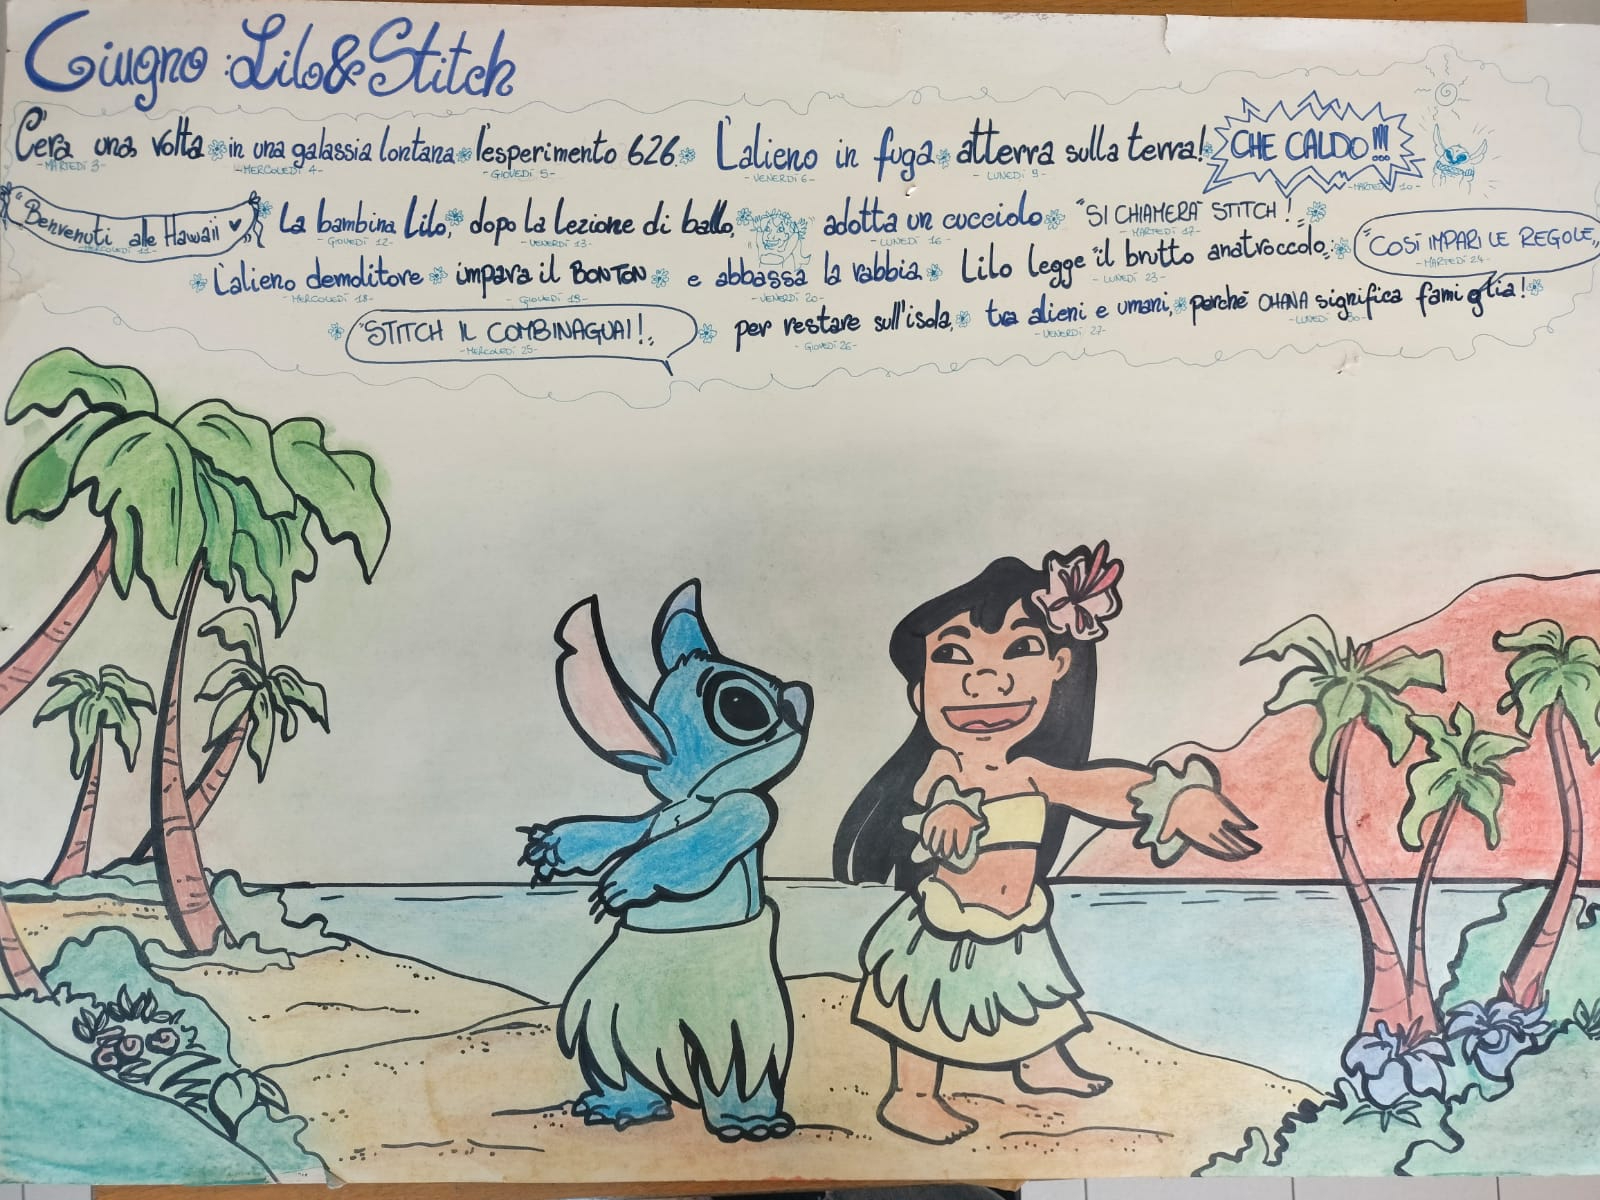 Giugno : Lilo & Stitch
C'era una volta in una galassia lontana l'esperimento 626. L'alieno in fuga atterra sulla terra! CHE CALDO!!!
- MARTEDÌ 3 - - MERCOLEDÌ 4 - - GIOVEDÌ 5 - - VENERDÌ 6 - - LUNEDÌ 9 - - MARTEDÌ 10 -
"Benvenuti alle Hawaii" La bambina Lilo, dopo la lezione di ballo, adotta un cucciolo "SI CHIAMERÀ STITCH!"
- MERCOLEDÌ 11 - - GIOVEDÌ 12 - - VENERDÌ 13 - - LUNEDÌ 16 - - MARTEDÌ 17 -
L'alieno demolitore impara il BONTON e abbassa la rabbia Lilo legge "il brutto anatroccolo" "COSÌ IMPARI LE REGOLE"
- MERCOLEDÌ 18 - - GIOVEDÌ 19 - - VENERDÌ 20 - - LUNEDÌ 23 - - MARTEDÌ 24 -
"STITCH IL COMBINAGUAI!" per restare sull'isola, tra alieni e umani, perchè OHANA significa famiglia!
- MERCOLEDÌ 25 - - GIOVEDÌ 26 - - VENERDÌ 27 - - LUNEDÌ 30 -